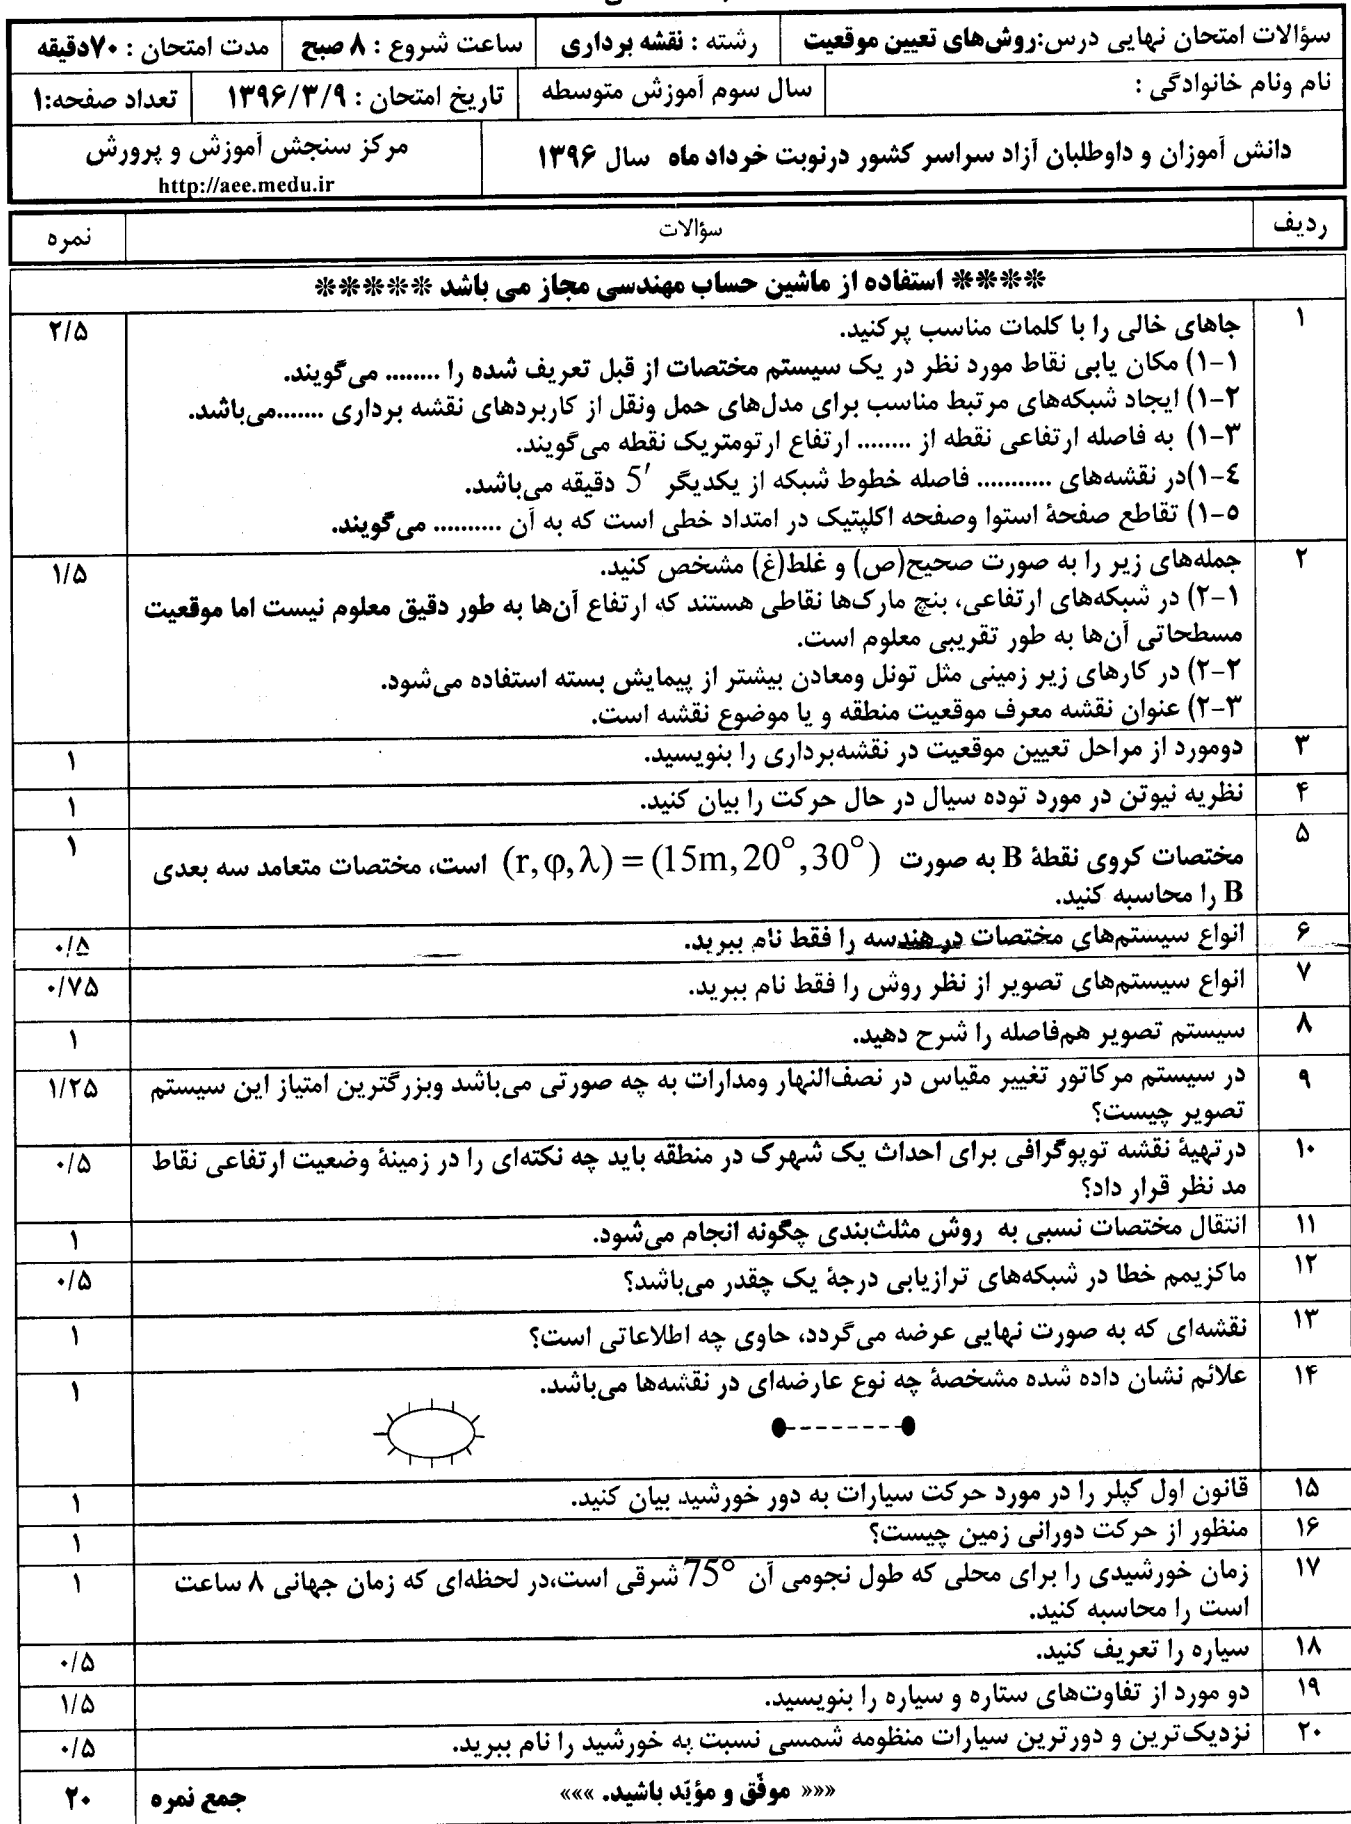 سؤالات امتحان نهایی درس:روش‌های تعیین موقعیت
رشته : نقشه برداری
ساعت شروع : ۸ صبح
مدت امتحان : ۷۰دقیقه
نام ونام خانوادگی :
سال سوم آموزش متوسطه
تاریخ امتحان : ۱۳۹۶/۳/۹
تعداد صفحه:۱
دانش آموزان و داوطلبان آزاد سراسر کشور درنوبت خرداد ماه سال ۱۳۹۶
مرکز سنجش آموزش و پرورش
http://aee.medu.ir
ردیف سؤالات نمره
***** استفاده از ماشین حساب مهندسی مجاز می باشد *****
۱ جاهای خالی را با کلمات مناسب پرکنید. ۲/۵
۱-۱) مکان یابی نقاط مورد نظر در یک سیستم مختصات از قبل تعریف شده را ........ می‌گویند.
۱-۲) ایجاد شبکه‌های مرتبط مناسب برای مدل‌های حمل ونقل از کاربردهای نقشه برداری .......می‌باشد.
۱-۳) به فاصله ارتفاعی نقطه از ........ ارتفاع ارتومتریک نقطه می‌گویند.
۱-٤)در نقشه‌های ........... فاصله خطوط شبکه از یکدیگر 5′ دقیقه می‌باشد.
۱-۵) تقاطع صفحهٔ استوا وصفحه اکلپتیک در امتداد خطی است که به آن .......... می‌گویند.
۲ جمله‌های زیر را به صورت صحیح(ص) و غلط(غ) مشخص کنید. ۱/۵
۲-۱) در شبکه‌های ارتفاعی، بنچ مارک‌ها نقاطی هستند که ارتفاع آن‌ها به طور دقیق معلوم نیست اما موقعیت
مسطحاتی آن‌ها به طور تقریبی معلوم است.
۲-۲) در کارهای زیر زمینی مثل تونل ومعادن بیشتر از پیمایش بسته استفاده می‌شود.
۲-۳) عنوان نقشه معرف موقعیت منطقه و یا موضوع نقشه است.
۳ دومورد از مراحل تعیین موقعیت در نقشه‌برداری را بنویسید. ۱
۴ نظریه نیوتن در مورد توده سیال در حال حرکت را بیان کنید. ۱
۵ مختصات کروی نقطهٔ B به صورت (r,φ,λ)=(15m,20°,30°) است، مختصات متعامد سه بعدی ۱
B را محاسبه کنید.
۶ انواع سیستم‌های مختصات در هندسه را فقط نام ببرید. ۰/۵
۷ انواع سیستم‌های تصویر از نظر روش را فقط نام ببرید. ۰/۷۵
۸ سیستم تصویر هم‌فاصله را شرح دهید. ۱
۹ در سیستم مرکاتور تغییر مقیاس در نصف‌النهار ومدارات به چه صورتی می‌باشد وبزرگترین امتیاز این سیستم ۱/۲۵
تصویر چیست؟
۱۰ درتهیهٔ نقشه توپوگرافی برای احداث یک شهرک در منطقه باید چه نکته‌ای را در زمینهٔ وضعیت ارتفاعی نقاط ۰/۵
مد نظر قرار داد؟
۱۱ انتقال مختصات نسبی به روش مثلث‌بندی چگونه انجام می‌شود. ۱
۱۲ ماکزیمم خطا در شبکه‌های ترازیابی درجهٔ یک چقدر می‌باشد؟ ۰/۵
۱۳ نقشه‌ای که به صورت نهایی عرضه می‌گردد، حاوی چه اطلاعاتی است؟ ۱
۱۴ علائم نشان داده شده مشخصهٔ چه نوع عارضه‌ای در نقشه‌ها می‌باشد. ۱
۱۵ قانون اول کپلر را در مورد حرکت سیارات به دور خورشید بیان کنید. ۱
۱۶ منظور از حرکت دورانی زمین چیست؟ ۱
۱۷ زمان خورشیدی را برای محلی که طول نجومی آن 75° شرقی است،در لحظه‌ای که زمان جهانی ۸ ساعت ۱
است را محاسبه کنید.
۱۸ سیاره را تعریف کنید. ۰/۵
۱۹ دو مورد از تفاوت‌های ستاره و سیاره را بنویسید. ۱/۵
۲۰ نزدیک‌ترین و دورترین سیارات منظومه شمسی نسبت به خورشید را نام ببرید. ۰/۵
««« موفّق و مؤیّد باشید. »»» جمع نمره ۲۰